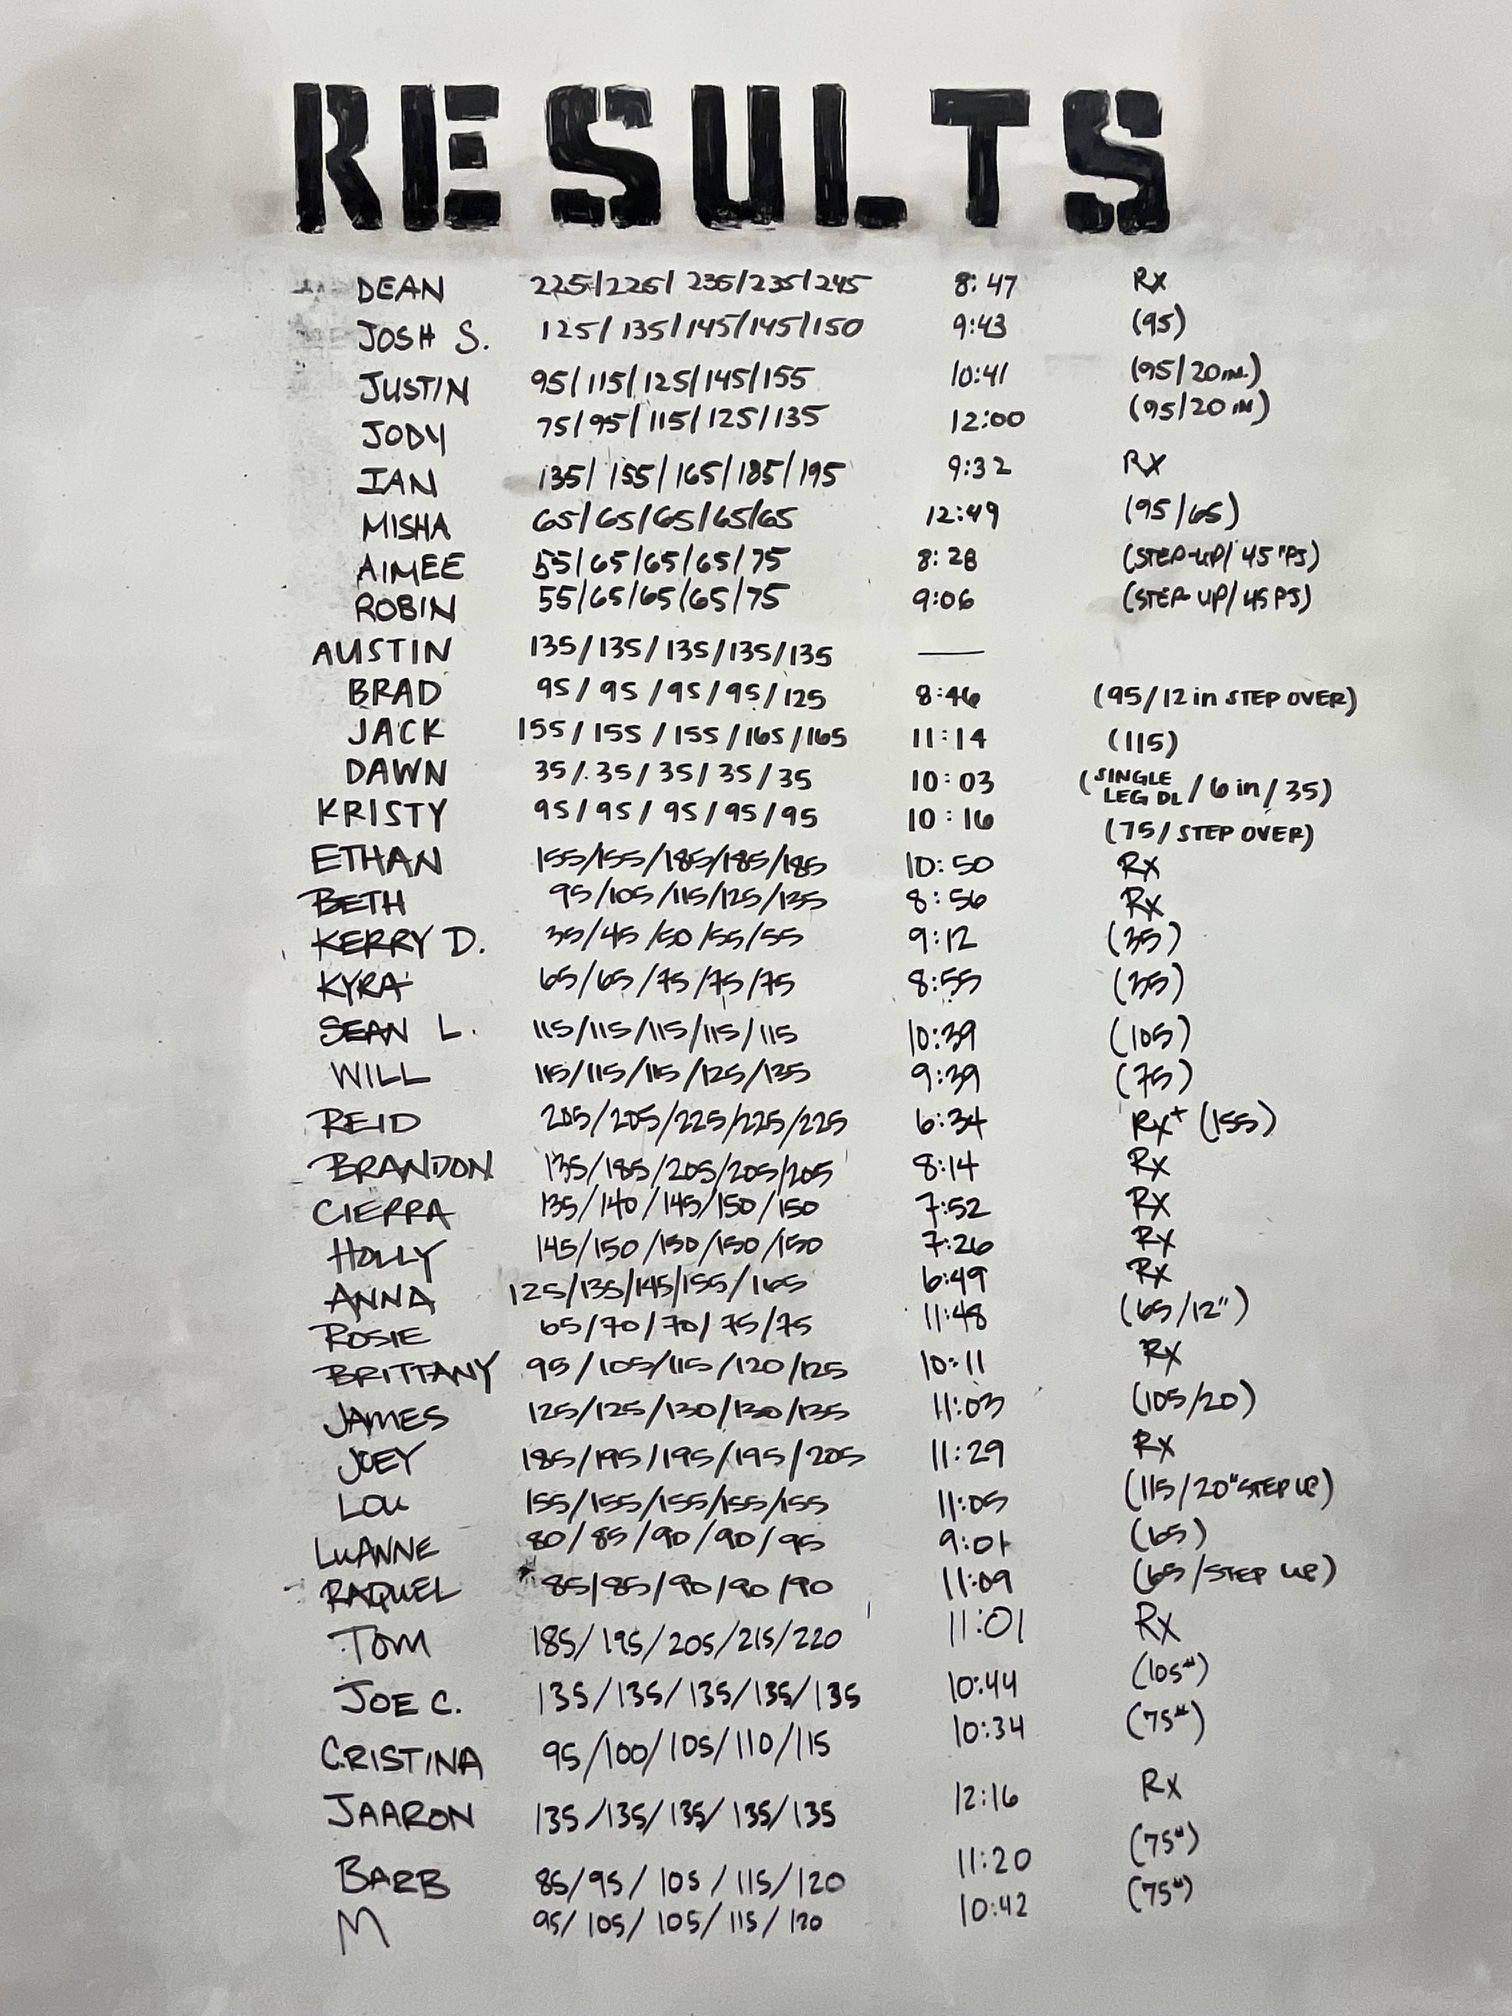 RESULTS
DEAN 225/225/235/235/245 8:47 Rx
JOSH S. 125/135/145/145/150 9:43 (95)
JUSTIN 95/115/125/145/155 10:41 (95/20 IN.)
JODY 75/95/115/125/135 12:00 (95/20 IN)
IAN 135/155/165/185/195 9:32 RX
MISHA 65/65/65/65/65 12:49 (95/65)
AIMEE 55/65/65/65/75 8:28 (STEP-UP/45 "PJ)
ROBIN 55/65/65/65/75 9:06 (STEP UP/45 PJ)
AUSTIN 135/135/135/135/135 —
BRAD 95/95/95/95/125 8:46 (95/12 in STEP OVER)
JACK 155/155/155/165/165 11:14 (115)
DAWN 35/35/35/35/35 10:03 (SINGLE LEG DL/6 in/35)
KRISTY 95/95/95/95/95 10:16 (75/STEP OVER)
ETHAN 155/155/185/185/185 10:50 Rx
BETH 95/105/115/125/135 8:56 Rx
KERRY D. 35/45/50/55/55 9:12 (35)
KYRA 65/65/75/75/75 8:55 (35)
SEAN L. 115/115/115/115/115 10:39 (105)
WILL 115/115/115/125/135 9:39 (75)
REID 205/205/225/225/225 6:34 Rx+ (155)
BRANDON 135/185/205/205/205 8:14 Rx
CIERRA 135/140/145/150/150 7:52 Rx
HOLLY 145/150/150/150/150 7:26 Rx
ANNA 125/135/145/155/165 6:49 Rx
ROSIE 65/70/70/75/75 11:48 (65/12")
BRITTANY 95/105/115/120/125 10:11 Rx
JAMES 125/125/130/130/135 11:03 (105/20)
JOEY 185/195/195/195/205 11:29 Rx
LOU 155/155/155/155/155 11:05 (115/20" STEP UP)
LUANNE 80/85/90/90/95 9:01 (65)
RAQUEL 85/85/90/90/90 11:09 (65/STEP UP)
TOM 185/195/205/215/220 11:01 Rx
JOE C. 135/135/135/135/135 10:44 (105#)
CRISTINA 95/100/105/110/115 10:34 (75#)
JAARON 135/135/135/135/135 12:16 Rx
BARB 85/95/105/115/120 11:20 (75#)
M 95/105/105/115/120 10:42 (75#)